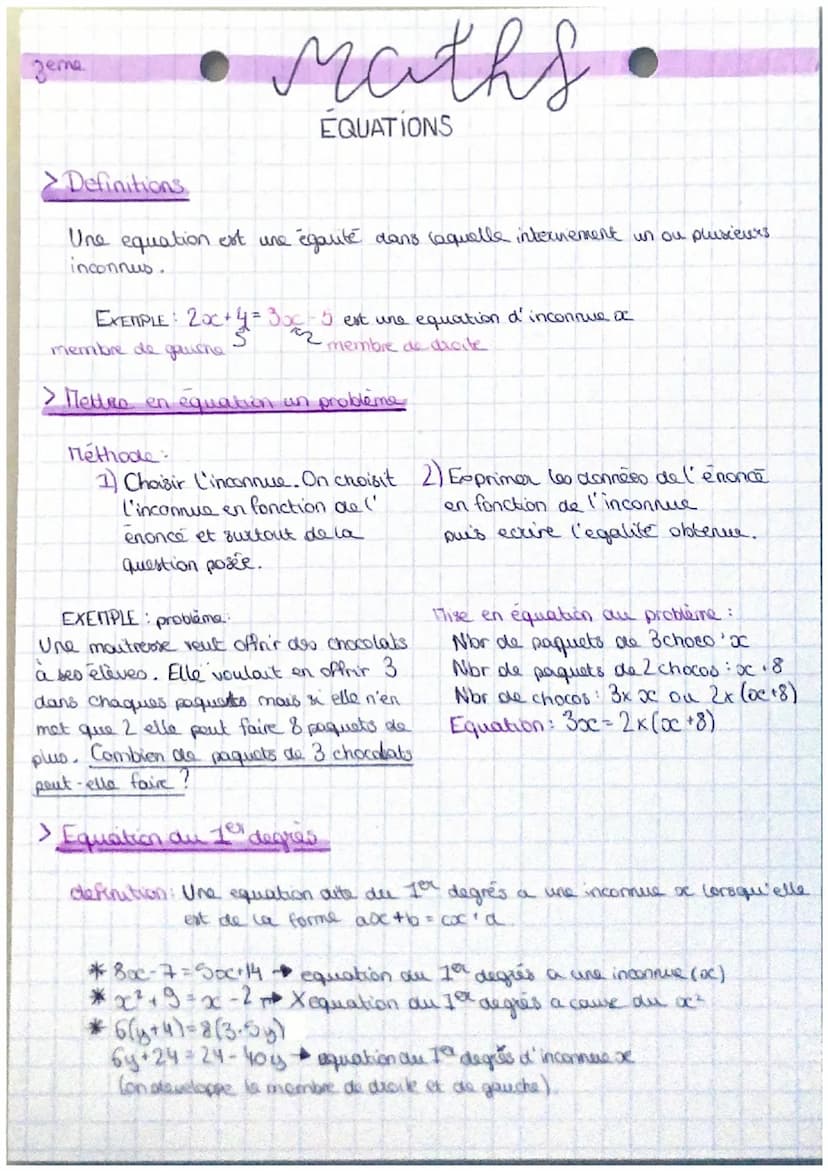 3eme
Maths
ÉQUATIONS
> Definitions
Une equation est une égalité dans laquelle interviennent un ou plusieurs
inconnus.
EXEMPLE : 2x+4 = 3x-5 est une equation d'inconnue x
membre de gauche membre de droite
> Mettre en équation un problème
Méthode :
1) Choisir l'inconnue. On choisit
l'inconnue en fonction de l'
énoncé et surtout de la
question posée.
2) Exprimer les données de l'énoncé
en fonction de l'inconnue
puis ecrire l'egalité obtenue.
EXEMPLE : problème :
Une maitresse veut offrir des chocolats
à ses élèves. Elle voulait en offrir 3
dans chaques paquets mais si elle n'en
met que 2 elle peut faire 8 paquets de
plus. Combien de paquets de 3 chocolats
peut-elle faire ?
Mise en équation du problème :
Nbr de paquets de 3 choco : x
Nbr de paquets de 2 chocos : x+8
Nbr de chocos : 3x x ou 2x (x+8)
Equation : 3x = 2x(x+8)
> Equation du 1er degrés
definition : Une equation dite du 1er degrés a une inconnue x lorsqu'elle
est de la forme ax+b = cx+d.
* 8x-7=5x+14 → equation du 1er degrés a une inconnue (x)
* x²+9=x-2 → X equation du 1er degrés a cause du x²
* 6(y+4)=8(3-5y)
6y+24=24-40y → equation du 1er degrés d'inconnue x
(on developpe le membre de droite et de gauche).